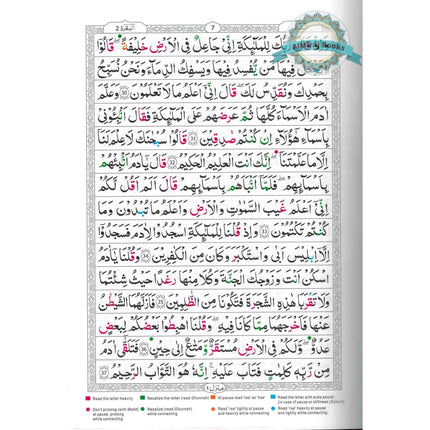 البقرة 2
7
AlMiraj Books
لِلْمَلٰٓئِكَةِ اِنِّيْ جَاعِلٌ فِي الْاَرْضِ خَلِيْفَةً ؕ قَالُوْٓا
فِيْهَا مَنْ يُّفْسِدُ فِيْهَا وَيَسْفِكُ الدِّمَآءَ ۚ وَنَحْنُ نُسَبِّحُ
بِحَمْدِكَ وَنُقَدِّسُ لَكَ ؕ قَالَ اِنِّيْٓ اَعْلَمُ مَا لَا تَعْلَمُوْنَ 30 وَعَلَّمَ
اٰدَمَ الْاَسْمَآءَ كُلَّهَا ثُمَّ عَرَضَهُمْ عَلَى الْمَلٰٓئِكَةِ ۙ فَقَالَ اَنْۢبِـُٔوْنِيْ
بِاَسْمَآءِ هٰٓؤُلَآءِ اِنْ كُنْتُمْ صٰدِقِيْنَ 31 قَالُوْا سُبْحٰنَكَ لَا عِلْمَ لَنَآ
اِلَّا مَا عَلَّمْتَنَا ؕ اِنَّكَ اَنْتَ الْعَلِيْمُ الْحَكِيْمُ 32 قَالَ يٰٓاٰدَمُ اَنْۢبِئْهُمْ
بِاَسْمَآئِهِمْ ۚ فَلَمَّآ اَنْۢبَاَهُمْ بِاَسْمَآئِهِمْ ۙ قَالَ اَلَمْ اَقُلْ لَّكُمْ
اِنِّيْٓ اَعْلَمُ غَيْبَ السَّمٰوٰتِ وَالْاَرْضِ ۙ وَاَعْلَمُ مَا تُبْدُوْنَ وَمَا
كُنْتُمْ تَكْتُمُوْنَ 33 وَاِذْ قُلْنَا لِلْمَلٰٓئِكَةِ اسْجُدُوْا لِاٰدَمَ فَسَجَدُوْٓا
اِلَّآ اِبْلِيْسَ ؕ اَبٰى وَاسْتَكْبَرَ ٭ وَكَانَ مِنَ الْكٰفِرِيْنَ 34 وَقُلْنَا يٰٓاٰدَمُ
اسْكُنْ اَنْتَ وَزَوْجُكَ الْجَنَّةَ وَكُلَا مِنْهَا رَغَدًا حَيْثُ شِئْتُمَا ۪
وَلَا تَقْرَبَا هٰذِهِ الشَّجَرَةَ فَتَكُوْنَا مِنَ الظّٰلِمِيْنَ 35 فَاَزَلَّهُمَا الشَّيْطٰنُ
عَنْهَا فَاَخْرَجَهُمَا مِمَّا كَانَا فِيْهِ ۪ وَقُلْنَا اهْبِطُوْا بَعْضُكُمْ لِبَعْضٍ
عَدُوٌّ ۚ وَلَكُمْ فِي الْاَرْضِ مُسْتَقَرٌّ وَّمَتَاعٌ اِلٰى حِيْنٍ 36 فَتَلَقّٰٓى اٰدَمُ
مِنْ رَّبِّهٖ كَلِمٰتٍ فَتَابَ عَلَيْهِ ؕ اِنَّهٗ هُوَ التَّوَّابُ الرَّحِيْمُ 37
منزل ١
Read the letter heavily
Nasalize the letter (read Ghunnah) while connecting
At pause read 'taa' as 'haa'
Read the letter with echo sound (in case of pause or stillness (Sukun))
Don't prolong (with Madd) at pause, prolong while connecting
Nasalize (read Ghunnah) while connecting
Read 'raa' lightly at pause and heavily while connecting
Read 'raa' heavily at pause and lightly while connecting